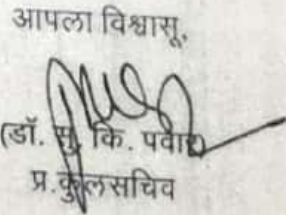 आपला विश्वासू,
(डॉ. सु. कि. पवार)
प्र.कुलसचिव